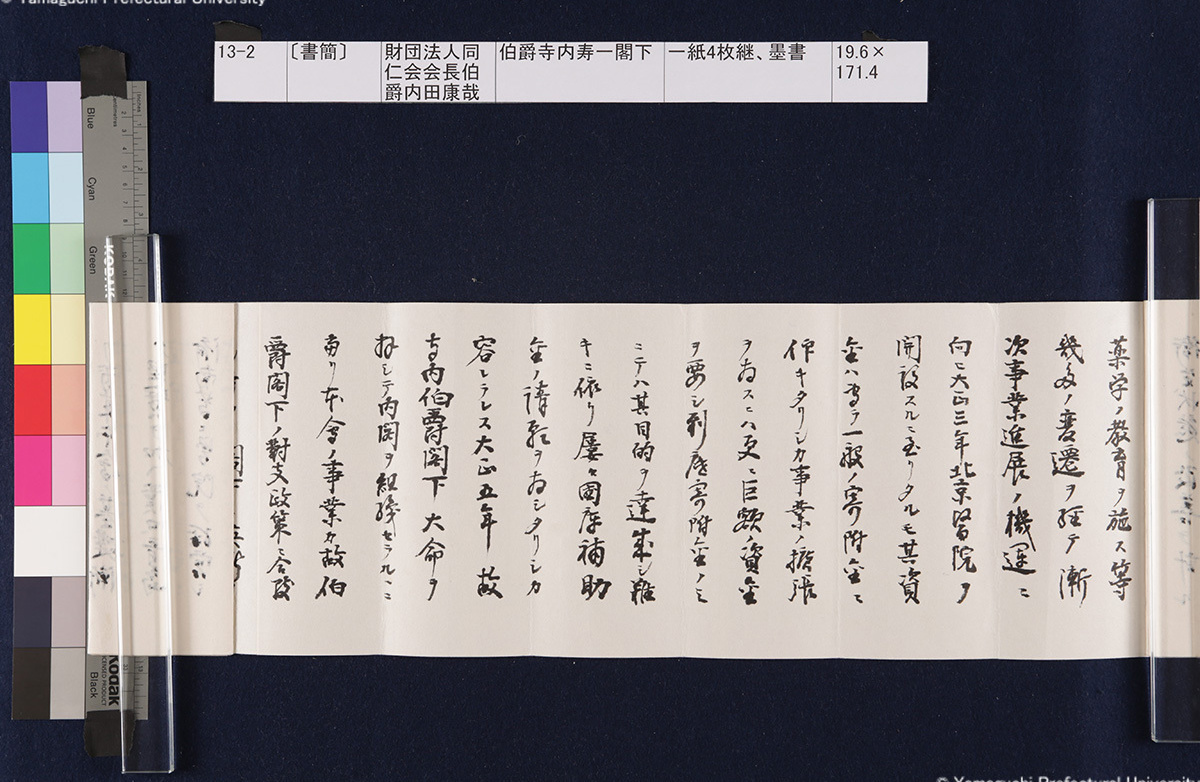 © Yamaguchi Prefectural University
13-2
〔書簡〕
財団法人同
仁会会長伯
爵内田康哉
伯爵寺内寿一閣下
一紙4枚継、墨書
19.6×
171.4
薬学ノ教育ヲ施ス等
幾多ノ変遷ヲ経テ漸
次事業進展ノ機運ニ
向ヒ大正三年北京医院ヲ
開設スルニ至リタルモ其資
金ハ専ラ一般ノ寄附金ニ
仰キタリシカ事業ノ拡張
ヲ為スニハ更ニ巨額ノ資金
ヲ要シ到底寄附金ノミ
ニテハ其目的ヲ達成シ難
キニ依リ屡々国庫補助
金ノ請願ヲ為シタリシカ
容レラレス大正五年故
寺内伯爵閣下大命ヲ
拝シテ内閣ヲ組織セラルヽニ
当リ本會ノ事業カ故伯
爵閣下ノ對支政策ニ合致
Blue
Cyan
Green
Black
KODAK
Kodak
LICENSED PRODUCT
© Yamaguchi Prefectural University